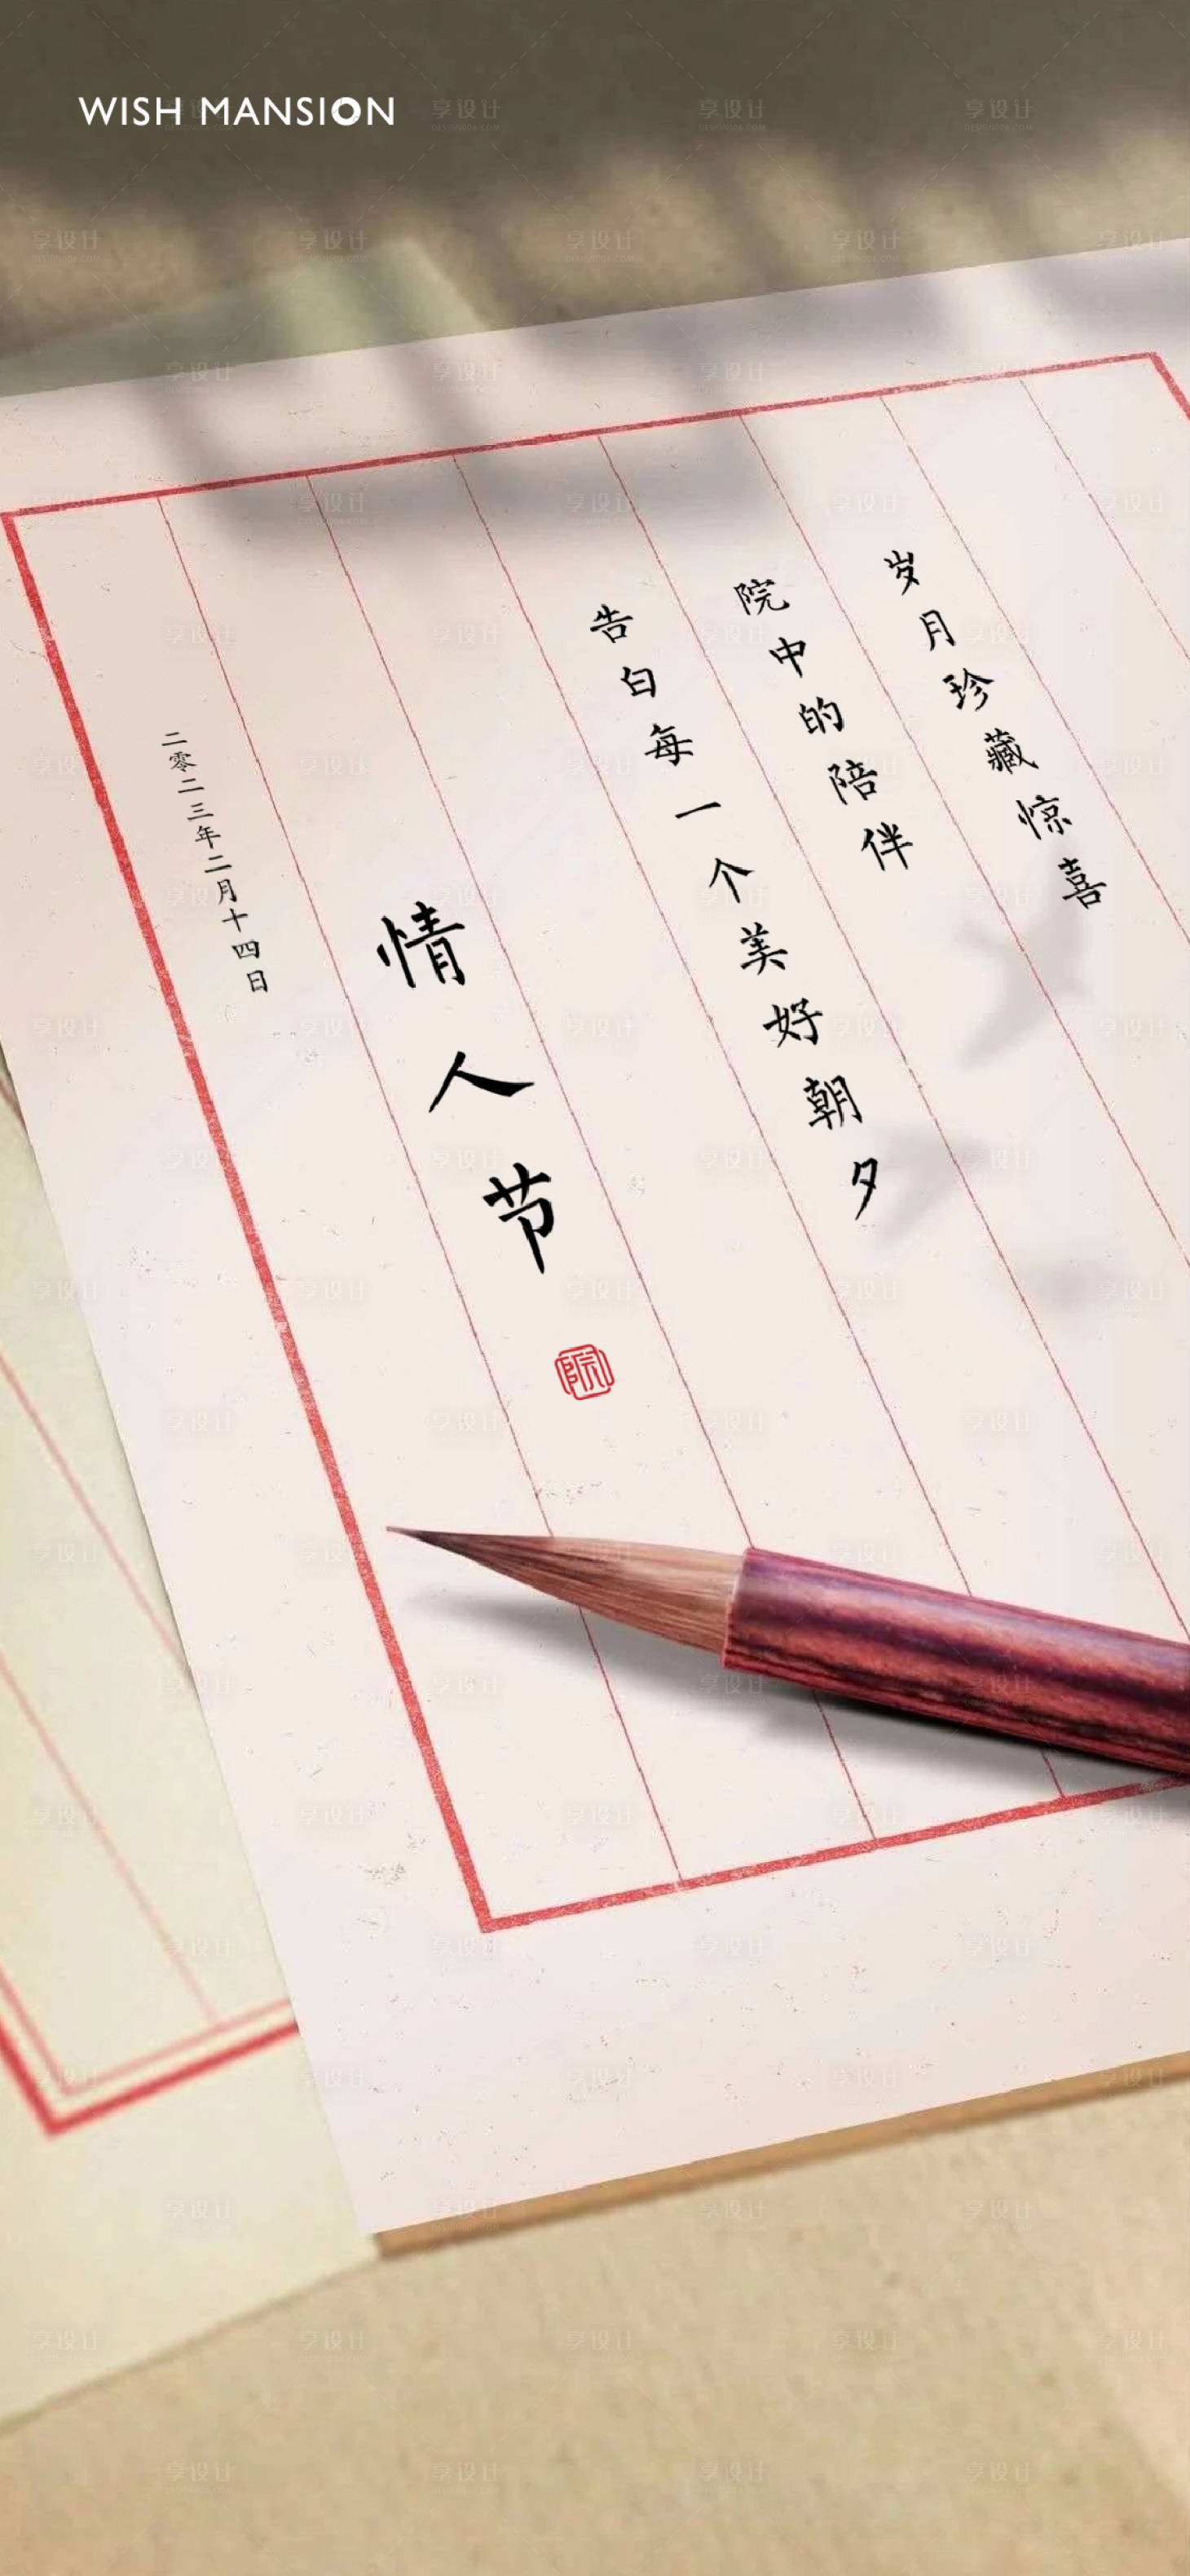 WISH MANSION
岁月珍藏惊喜
院中的陪伴
告白每一个美好朝夕
情人节
院
二零二三年二月十四日
享设计
DESIGN006.COM